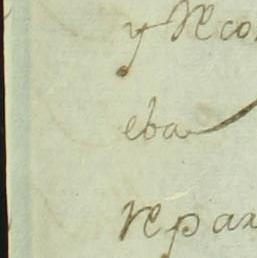 y Reco
eba
Repax